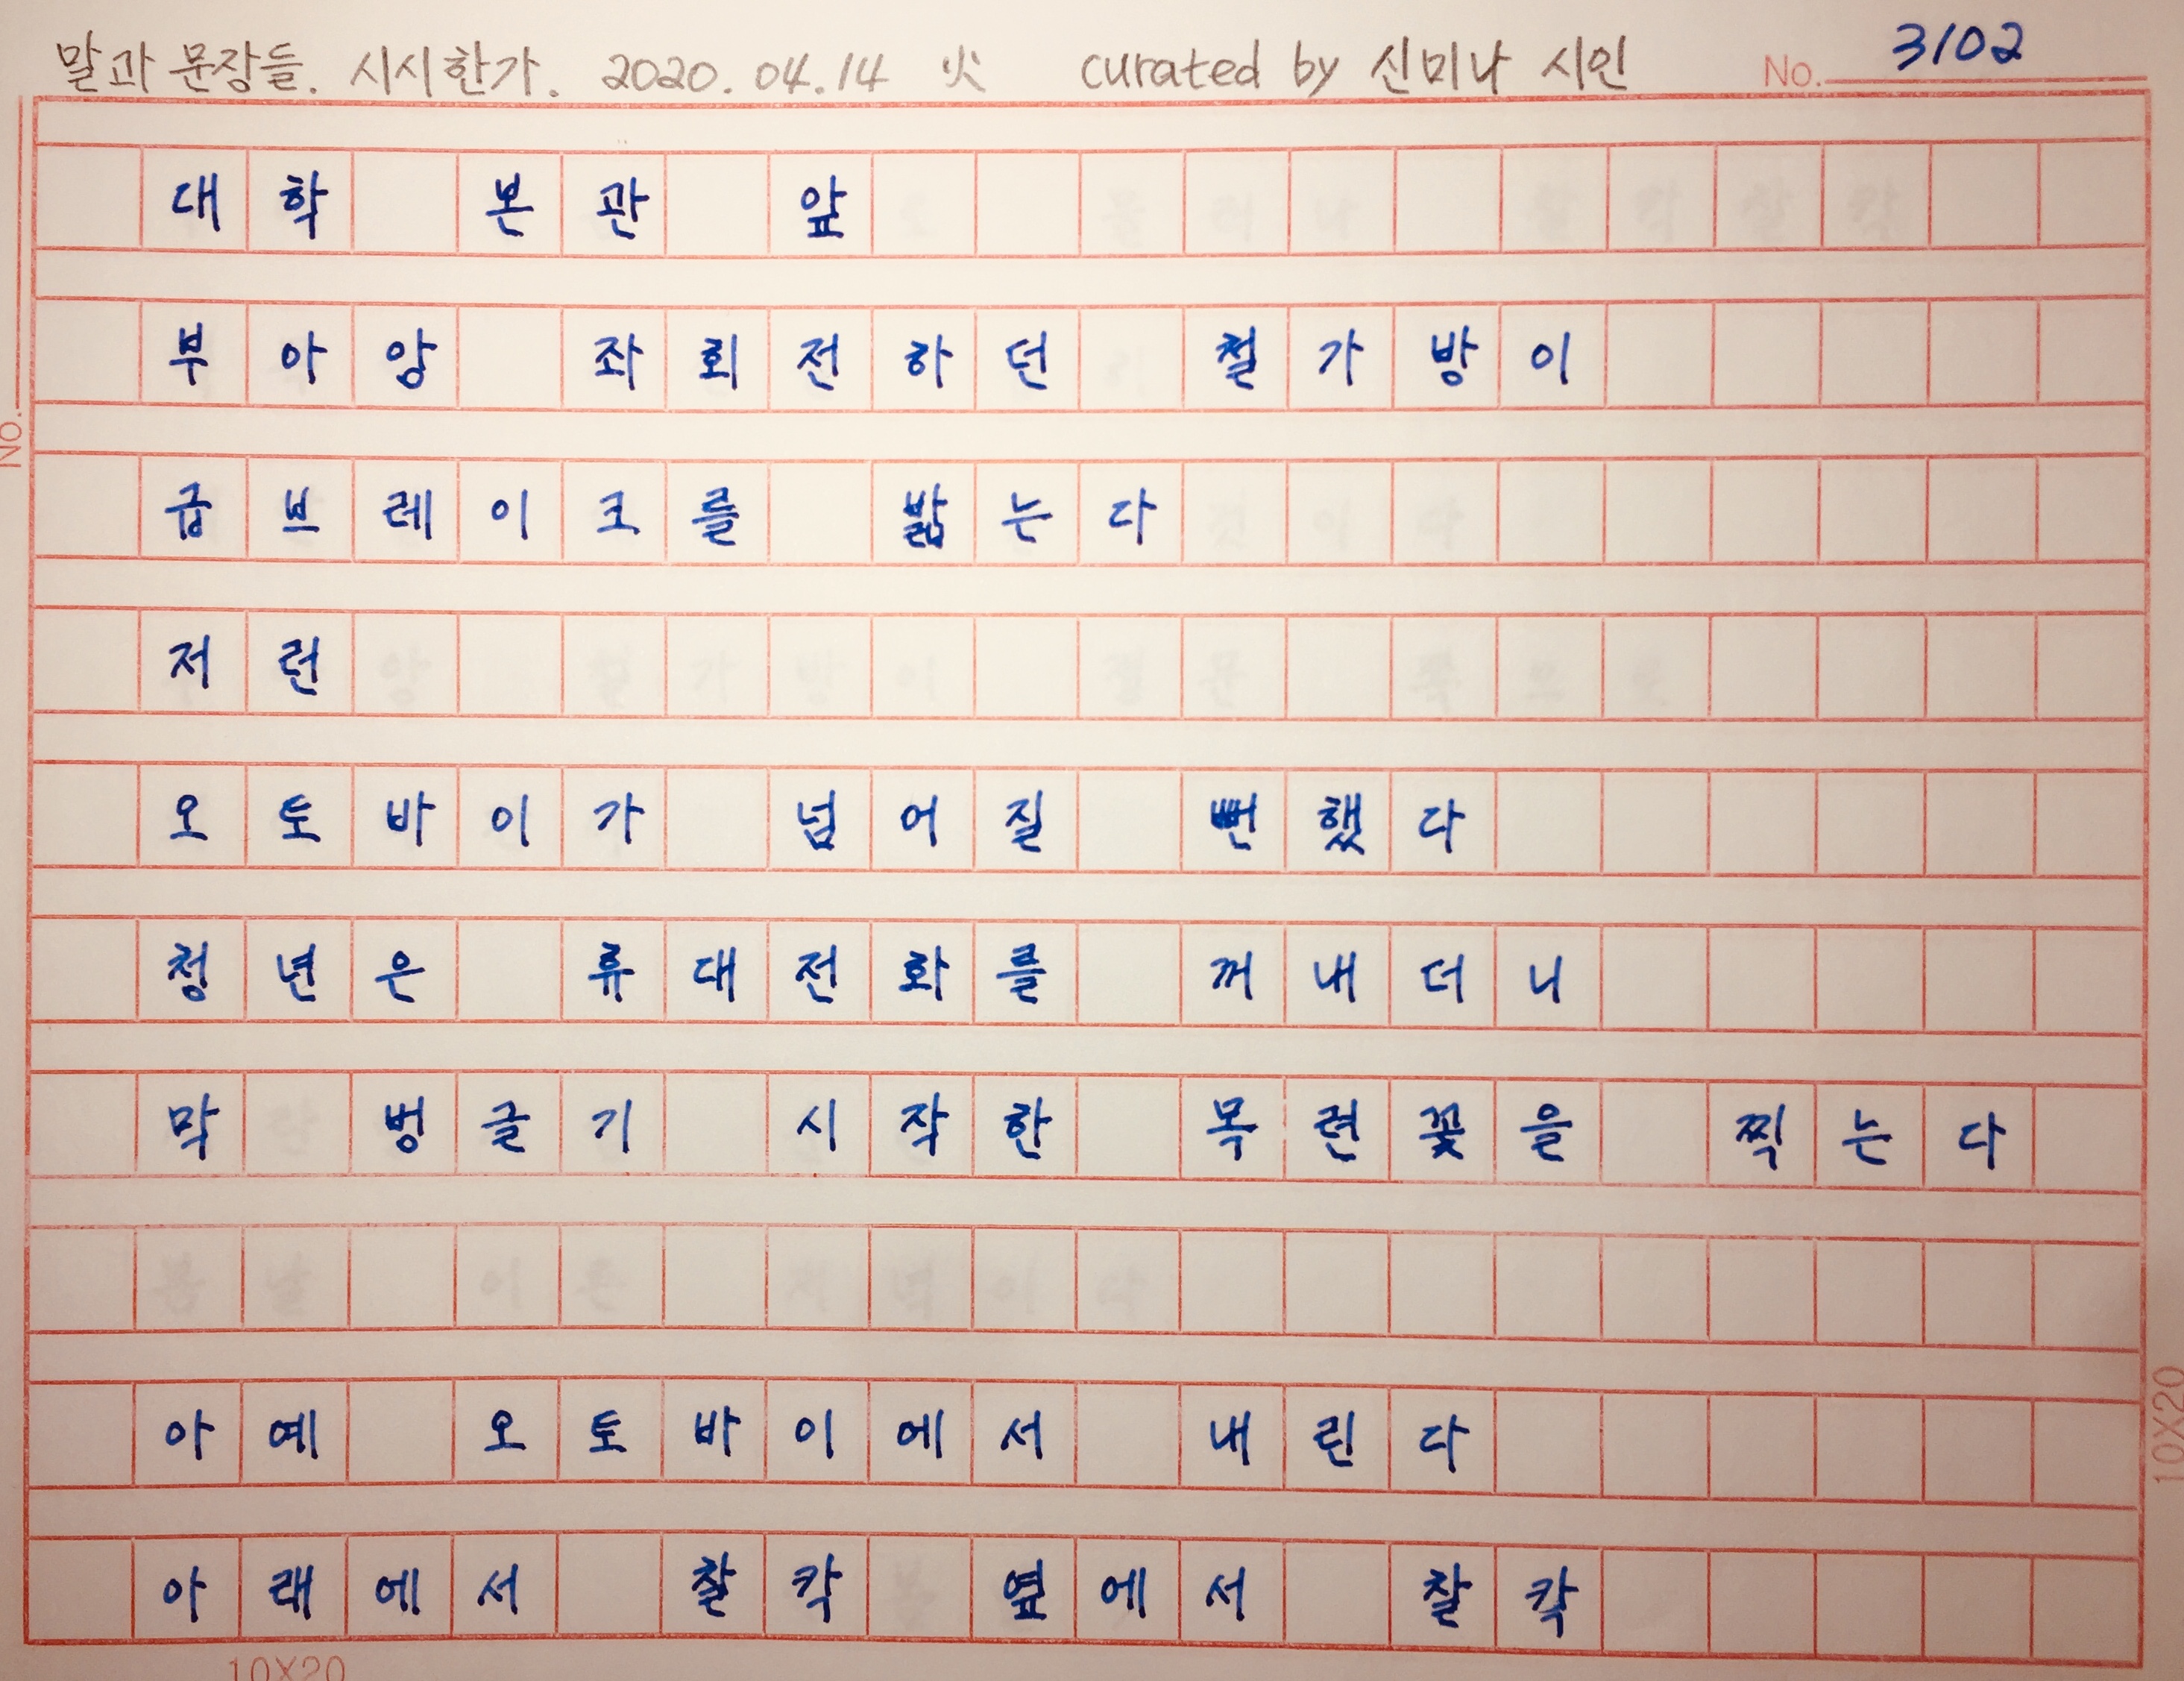 말과 문장들. 시시한가. 2020. 04. 14 火 curated by 신미나 시인 No. 3102
대학 본관 앞
부아앙 좌회전하던 철가방이
급브레이크를 밟는다
저런
오토바이가 넘어질 뻔했다
청년은 휴대전화를 꺼내더니
막 벙글기 시작한 목련꽃을 찍는다
아예 오토바이에서 내린다
아래에서 찰칵 옆에서 찰칵
No.
10X20
10X20